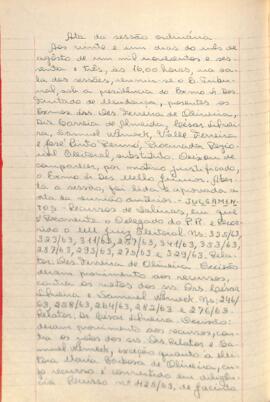 Ata da sessão ordinária
Aos vinte e um dias do mês de
agosto de um mil novecentos e ses-
senta e três, às 16,00 horas, na sa-
la das sessões, reuniu-se o E. Tribu-
nal, sob a presidência do Exmo Sr. Des.
Furtado de Mendonça, presentes os
Exmos srs. Des. Ferreira de Oliveira,
Drs. Correia de Almeida, César Silvei-
ra, Samuel Werneck, Valle Ferreira
e José Pinto Renno, Procurador Regio-
nal Eleitoral, substituto. Deixou de
comparecer, por motivo justificado
o Exmo Sr. Des. Mello Júnior. Aber-
ta a sessão, foi lida e aprovada a
ata da reunião anterior. - JULGAMEN-
TOS - Recursos de Salinas, em que
é recorrente o Delegado do P.R. e recor-
rido o MM Juiz Eleitoral. Ns: 325/63,
323/63, 311/63, 257/63, 341/63, 333/63,
287/63, 293/63, 275/63 e 329/63. Rela-
tor: Des. Ferreira de Oliveira. Decisão:
deram provimento aos recursos,
contra os votos dos srs. Drs. César
Silveira e Samuel Werneck. Ns: 246/
63, 258/63, 264/63, 282/63 e 276/63.
Relator: Dr. César Silveira. Decisão:
deram provimento aos recursos, con-
tra os votos dos srs. Drs. Relator e Sa-
muel Werneck, exceção quanto a elei-
tora Maria Barbosa de Oliveira, cu-
jo recurso é convertido em diligên-
cia. Recurso nº 428/63, de Jacinto